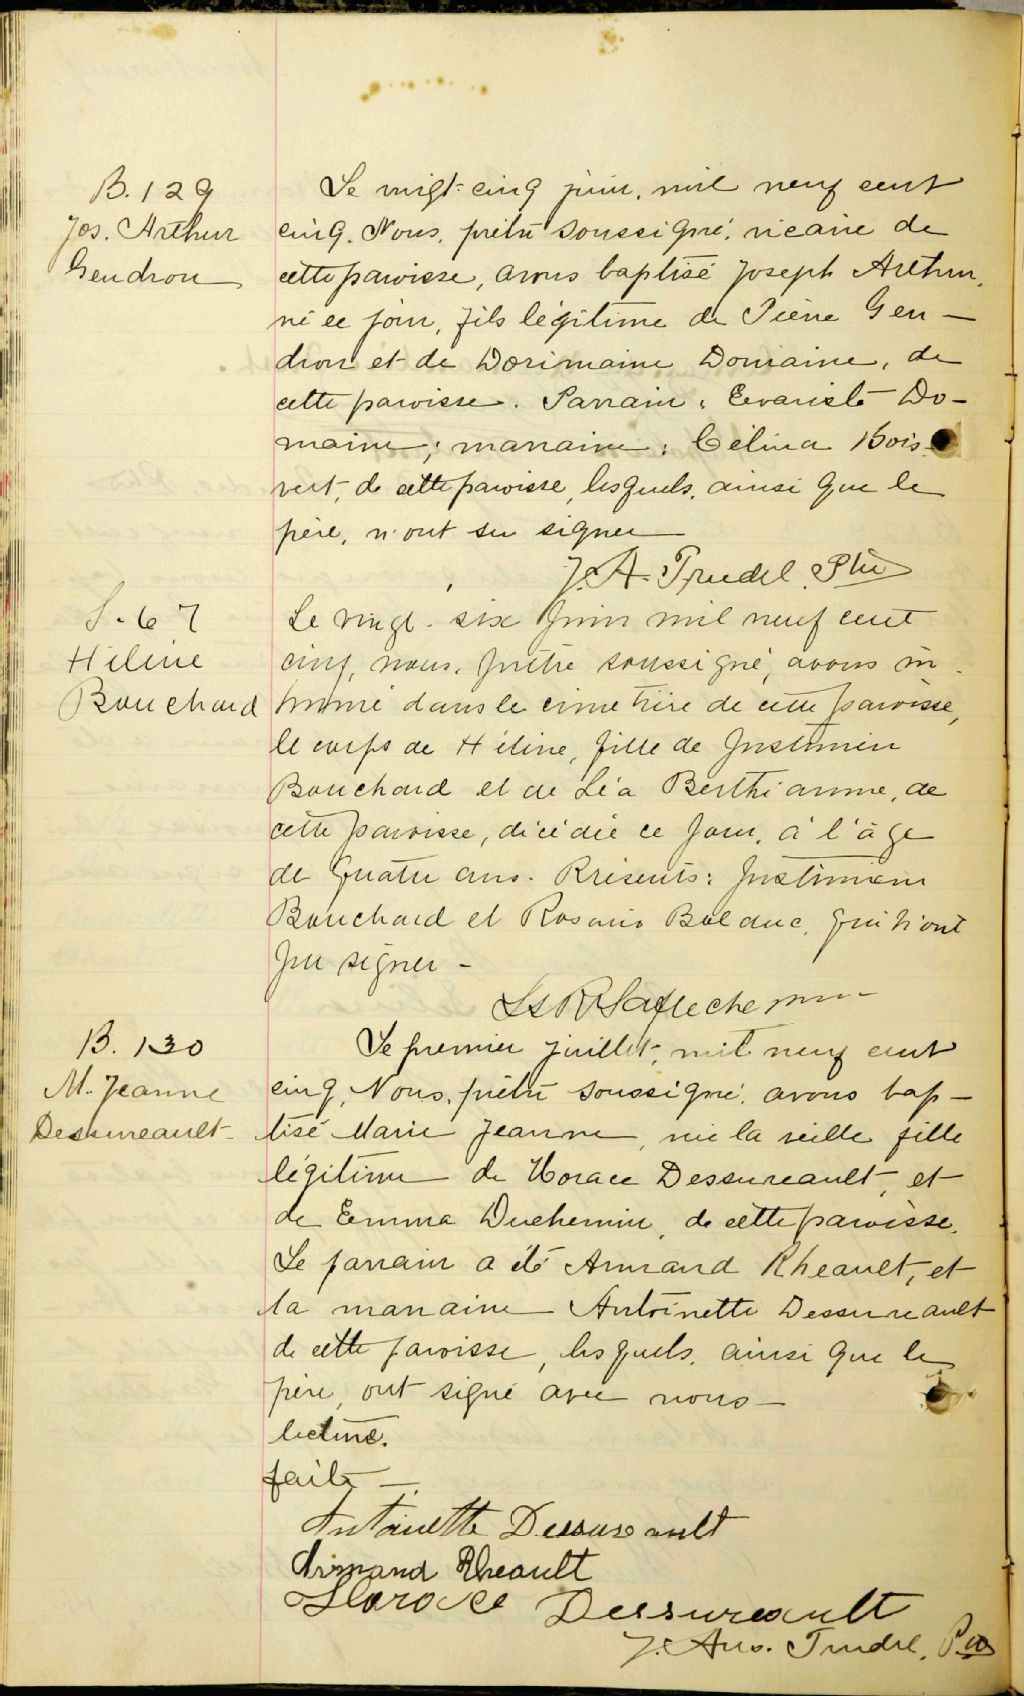 B. 129
Jos. Arthur
Gendron
Le vingt-cinq juin, mil neuf cent
cinq. Nous, prêtre soussigné, vicaire de
cette paroisse, avons baptisé Joseph Arthur,
né ce jour, fils légitime de Pierre Gen-
dron et de Dorimaine Domaine, de
cette paroisse. Parrain: Evariste Do-
maine; marraine: Célina Bois-
vert, de cette paroisse, lesquels, ainsi que le
père, n'ont su signer
J. A. Trudel, Ptre
S. 67
Hélène
Bouchard
Le vingt-six juin mil neuf cent
cinq, nous, prêtre soussigné, avons in-
humé dans le cimetière de cette paroisse,
le corps de Hélène, fille de Justinien
Bouchard et de Léa Berthiaume, de
cette paroisse, décédée ce jour, à l'âge
de quatre ans. Présents: Justinien
Bouchard et Rosario Bolduc, qui n'ont
pu signer -
Ls R Laflèche
B. 130
M. Jeanne
Dessureault
Le premier juillet, mil neuf cent
cinq, Nous, prêtre soussigné, avons bap-
tisé Marie Jeanne, née la veille fille
légitime de Horace Dessureault, et
de Emma Duchemin, de cette paroisse.
Le parrain a été Armand Rheault, et
la marraine Antoinette Dessureault
de cette paroisse, lesquels, ainsi que le
père, ont signé avec nous -
lecture.
faite -
Antoinette Dessureault
Armand Rheault
Horace Dessureault
J. Ars. Trudel, Ptre